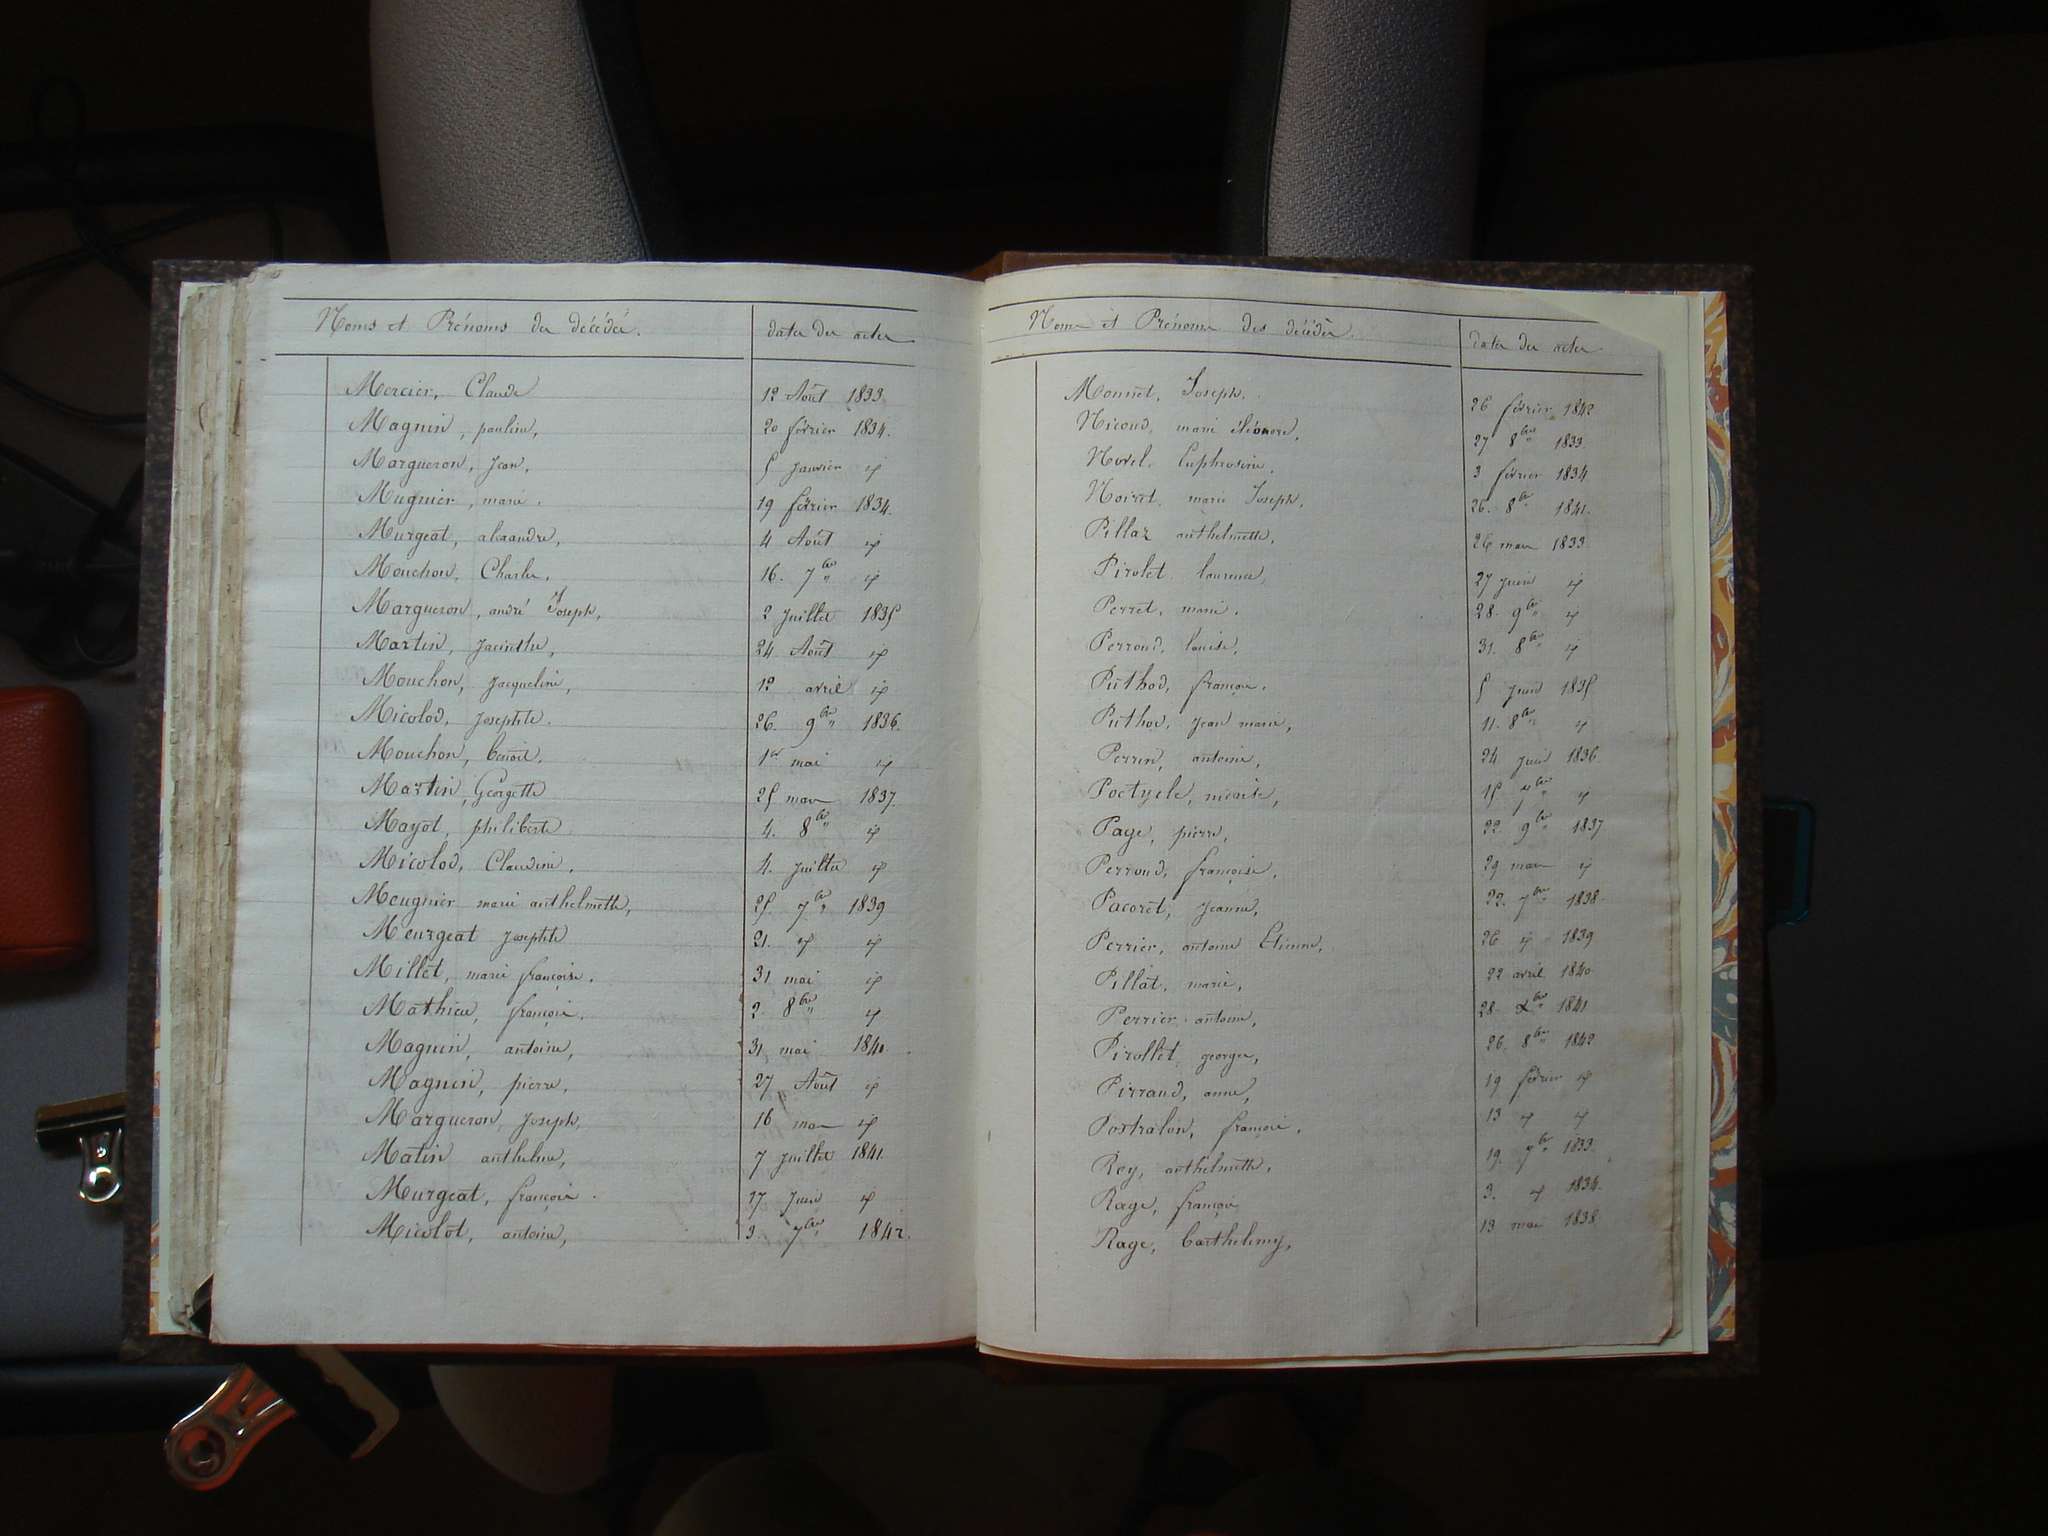 Noms et Prénoms des décédés. dates des actes
Mercier, Claude 12 Août 1833
Magnin, pauline, 20 février 1834.
Margueron, Jean, 5 Janvier id
Mugnier, marie. 19 février 1834.
Murgeat, alexandre, 4 Août id
Mouchon, Charles, 16. 7bre id
Margueron, andré Joseph, 2 Juillet 1835
Martin, Jacinthe, 24 Août id
Mouchon, Jacqueline, 12 avril id
Micolod, Josephte. 26. 9bre 1836.
Mouchon, benoit. 1er mai id
Martin, Georgette 25 mars 1837.
Mayot, philiberte 4. 8bre id
Micolod, Claudine, 4. Juillet id
Meugnier marie anthelmette, 25. 7bre 1839
Meurgeat Josephte 21. id id
Millet, marie françoise. 31 mai id
Mathieu, françois. 2. 8bre id
Magnin, antoine, 31 mai 1840.
Magnin, pierre, 27 Août id
Margueron, Joseph, 16 mars id
Matin anthelme, 7 Juillet 1841
Murgeat, françois. 17 Juin id
Micolot, antoine, 3. 7bre 1842.
Noms et Prénoms des décédés. dates des actes
Monnet, Joseph. 26 février 1842
Nicoud, marie éléonore, 27 8bre 1833
Novel, Euphrosine. 3 février 1834
Noiret marie Joseph, 26. 8bre 1841.
Pillaz anthelmette, 26 mars 1833
Pirolet laurence, 27 Juin id
Perret, marie. 28. 9bre id
Perroud, louise, 31. 8bre id
Puthod, françois. 5 Juin 1835
Puthod, Jean marie, 11. 8bre id
Perrin, antoine, 24 Juin 1836
15 id
Page, pierre, 22. 9bre 1837
Perroud, françoise, 29 mars id
Pacoret, Jeanne, 22. 7bre 1838.
Perrier, antoine Etienne, 26 id 1839
Pillat, marie, 22 avril 1840
Perrier antoine, 28. Xbre 1841
Pirollet georges, 26. 8bre 1842
Pirraud, anne, 19 février id
Postralon, françois. 13 id id
Rey, anthelmette, 19. 7bre 1833.
Rage, françois 3. id 1834.
Rage, barthelemy, 13 mai 1838